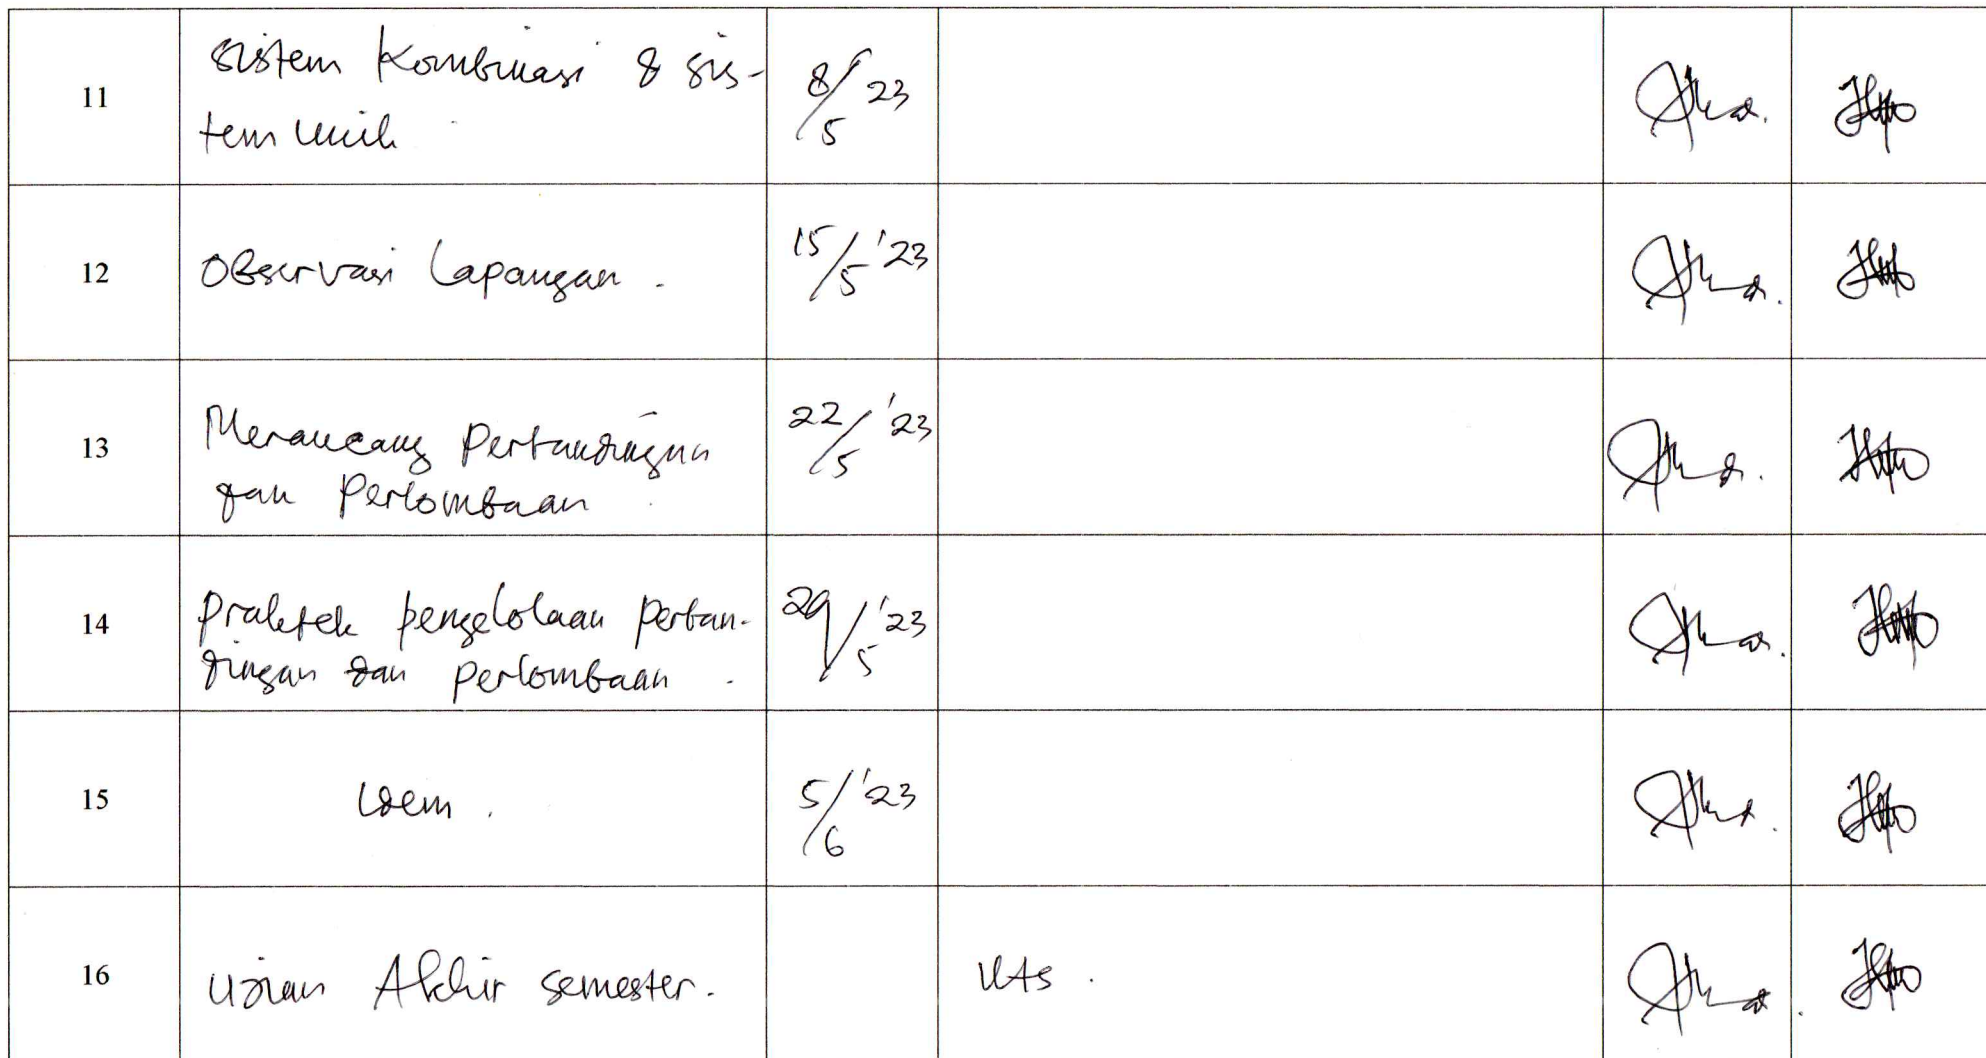 11
Sistem Kombinasi & sis-
tem unik
8/5 23
12
Observasi Lapangan .
15/5 '23
13
Merancang Pertandingan
dan Perlombaan .
22/5 '23
14
Praktek pengelolaan pertan-
dingan dan perlombaan .
29/5 '23
15
idem .
5/6 '23
16
Ujian Akhir semester.
UAS .